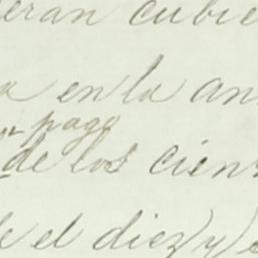 eran cubie
a en la an
pago
de los cien
e el diez y s